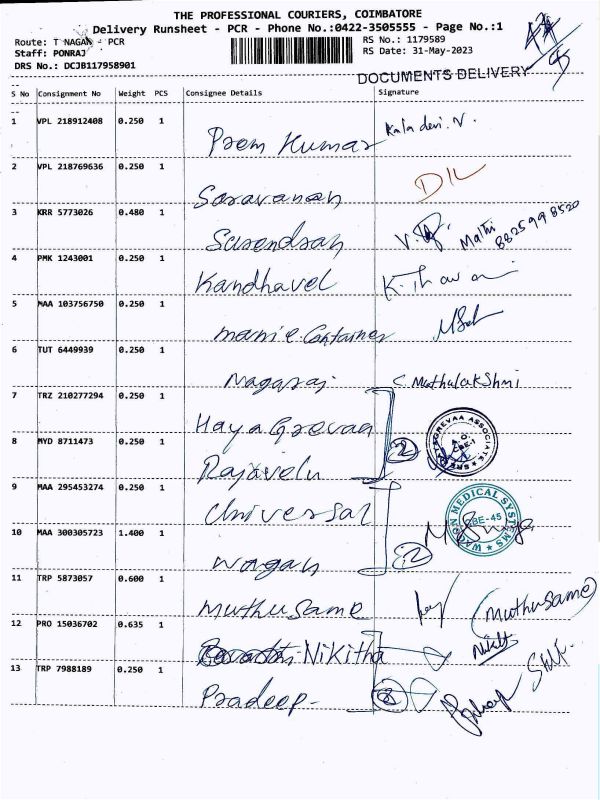 THE PROFESSIONAL COURIERS, COIMBATORE
Delivery Runsheet - PCR - Phone No.:0422-3505555 - Page No.:1
Route: T NAGAR - PCR
RS No.: 1179589
Staff: PONRAJ
RS Date: 31-May-2023
DRS No.: DCJB117958901
DOCUMENTS DELIVERY
S No Consignment No Weight PCS Consignee Details Signature
1 VPL 218912408 0.250 1
Prem Kumar Kaladevi. V.
2 VPL 218769636 0.250 1
Saravanan
3 KRR 5773026 0.480 1
Surendran Malhi 882599 8520
4 PMK 1243001 0.250 1
Kandhavel
5 MAA 103756750 0.250 1
Container
6 TUT 6449939 0.250 1
Nagaraj C. Muthulakshmi
7 TRZ 210277294 0.250 1
HayaGrevaa
8 MYD 8711473 0.250 1
Rajavelu 2
9 MAA 295453274 0.250 1
Universal
WAGAN MEDICAL SYSTEMS
CBE-45
10 MAA 300305723 1.400 1
Wagan 2
11 TRP 5873057 0.600 1
Muthusame (Muthusame)
12 PRO 15036702 0.635 1
Nikitha
13 TRP 7988189 0.250 1
Pradeep -